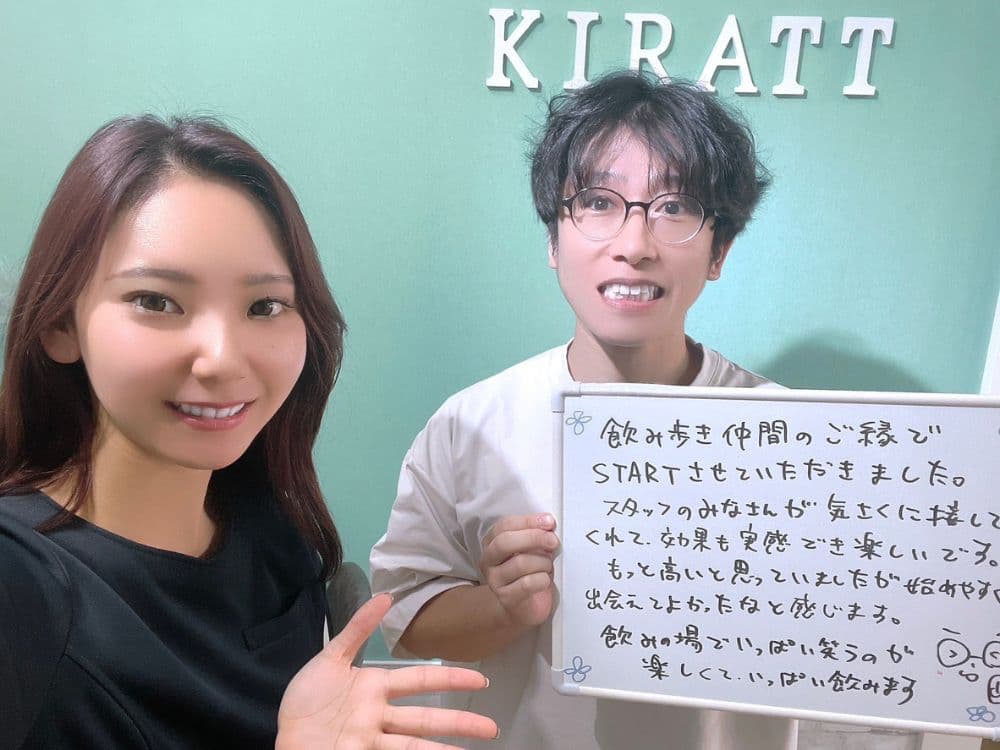 KIRATT
飲み歩き仲間のご縁で
STARTさせていただきました。
スタッフのみなさんが気さくに接して
くれて、効果も実感でき楽しいです。
もっと高いと思っていましたが始めやすく
出会えてよかったなと感じます。
飲みの場でいっぱい笑うのが
楽しくて、いっぱい飲みます